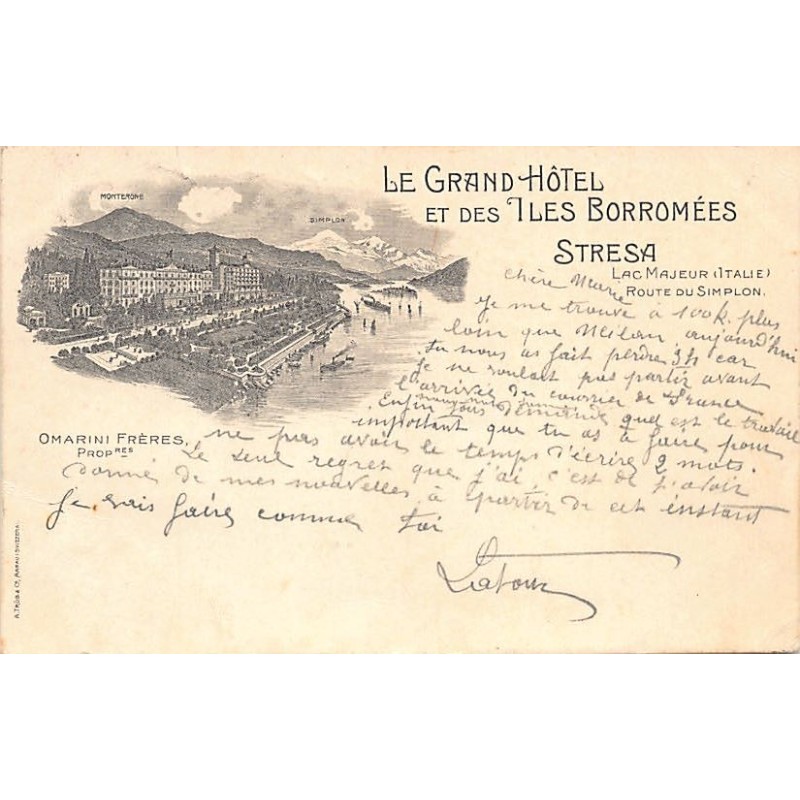 LE GRAND HÔTEL
ET DES ILES BORROMÉES
STRESA
LAC MAJEUR (ITALIE)
ROUTE DU SIMPLON.
MONTERONE
SIMPLON
OMARINI FRÈRES,
PROPRES
Chère Marie
Je me trouve à 100k. plus
loin que Milan, aujourd'hui
tu nous as fait perdre 3h car
je ne voulait pas partir avant
l'arrivée du courrier de France
Enfin demande quel est le travail
important que tu as à faire pour
ne pas avoir le temps d'écrire 2 mots.
Le seul regret que j'ai, c'est de t'avoir
donné de mes nouvelles, à partir de cet instant
je vais faire comme toi
Latour
A. TRÜB & CIE, AARAU (SUISSE)